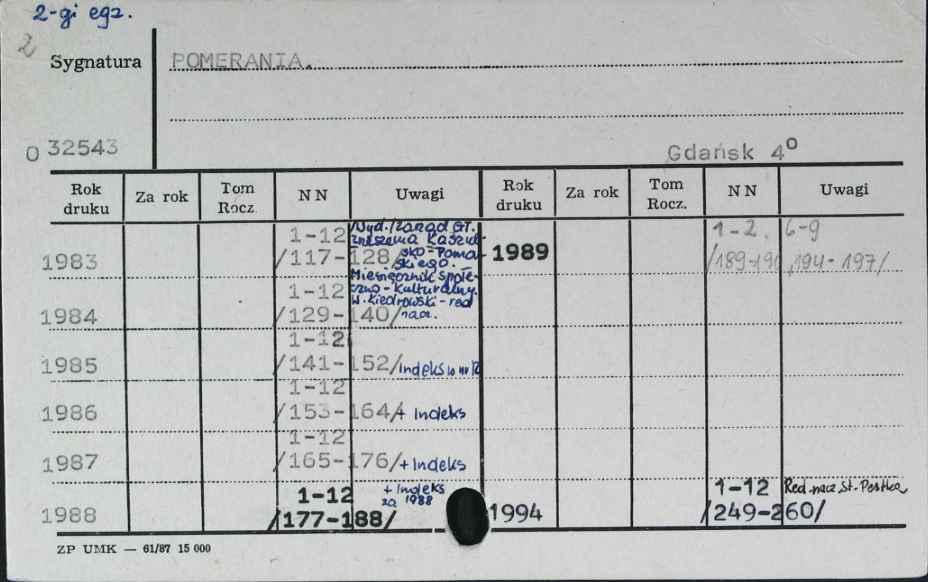 2-gi egz.
2
Sygnatura POMERANIA.
O 32543
Gdańsk 4o
Rok druku Za rok Tom Rocz. NN Uwagi Rok druku Za rok Tom Rocz. NN Uwagi
1983 1-12 /117-128/ Wyd. Zarząd Gł. Zrzeszenia Kaszub-sko-Pomorskiego. 1989 1-2, 6-9 /189-190, 194-197/
1984 1-12 /129-140/ Miesięcznik społe-czno-kulturalny. W. Kiedrowski-red nacz.
1985 1-12 /141-152/ indeks w nr 12
1986 1-12 /153-164/ + indeks
1987 1-12 /165-176/ + indeks
1988 1-12 /177-188/ + indeks za 1988 1994 1-12 /249-260/ Red. nacz. St. Pestka
ZP UMK — 61/87 15 000